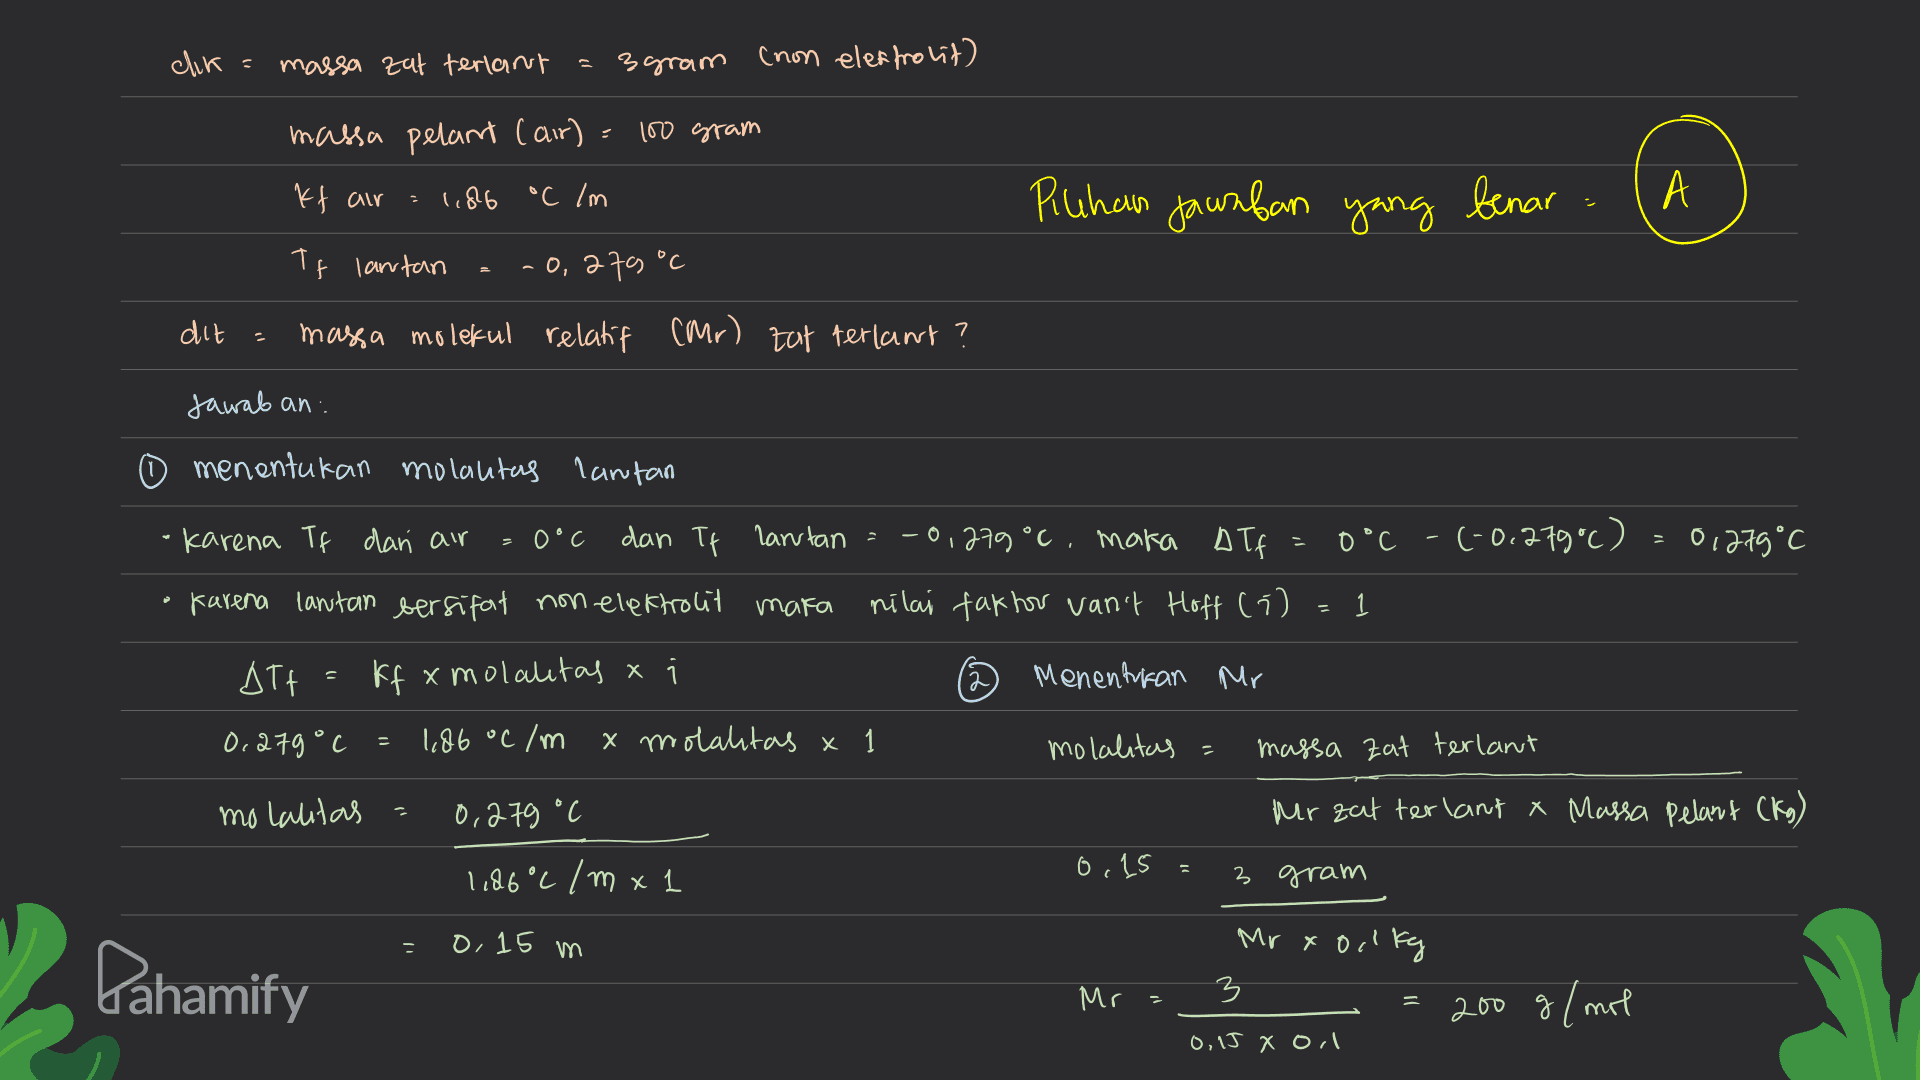 dik = massa zat terlarut = 3 gram (non elektrolit)
massa pelarut (air) = 100 gram
Kf air = 1,86 °C /m
Tf larutan = -0,279 °C
Pilihan jawaban yang benar = A
dit = massa molekul relatif (Mr) zat terlarut ?
Jawaban :
① menentukan molalitas larutan
• Karena Tf dari air = 0°C dan Tf larutan = -0,279 °C, maka ΔTf = 0°C - (-0,279°C) = 0,279°C
• Karena larutan bersifat non elektrolit maka nilai faktor van't Hoff (i) = 1
ΔTf = Kf x molalitas x i
0,279°C = 1,86 °C /m x molalitas x 1
molalitas = 0,279 °C
1,86°C /m x 1
= 0,15 m
② Menentukan Mr
molalitas = massa zat terlarut
Mr zat terlarut x Massa pelarut (kg)
0,15 = 3 gram
Mr x 0,1 kg
Mr = 3 = 200 g/mol
0,15 x 0,1
Pahamify